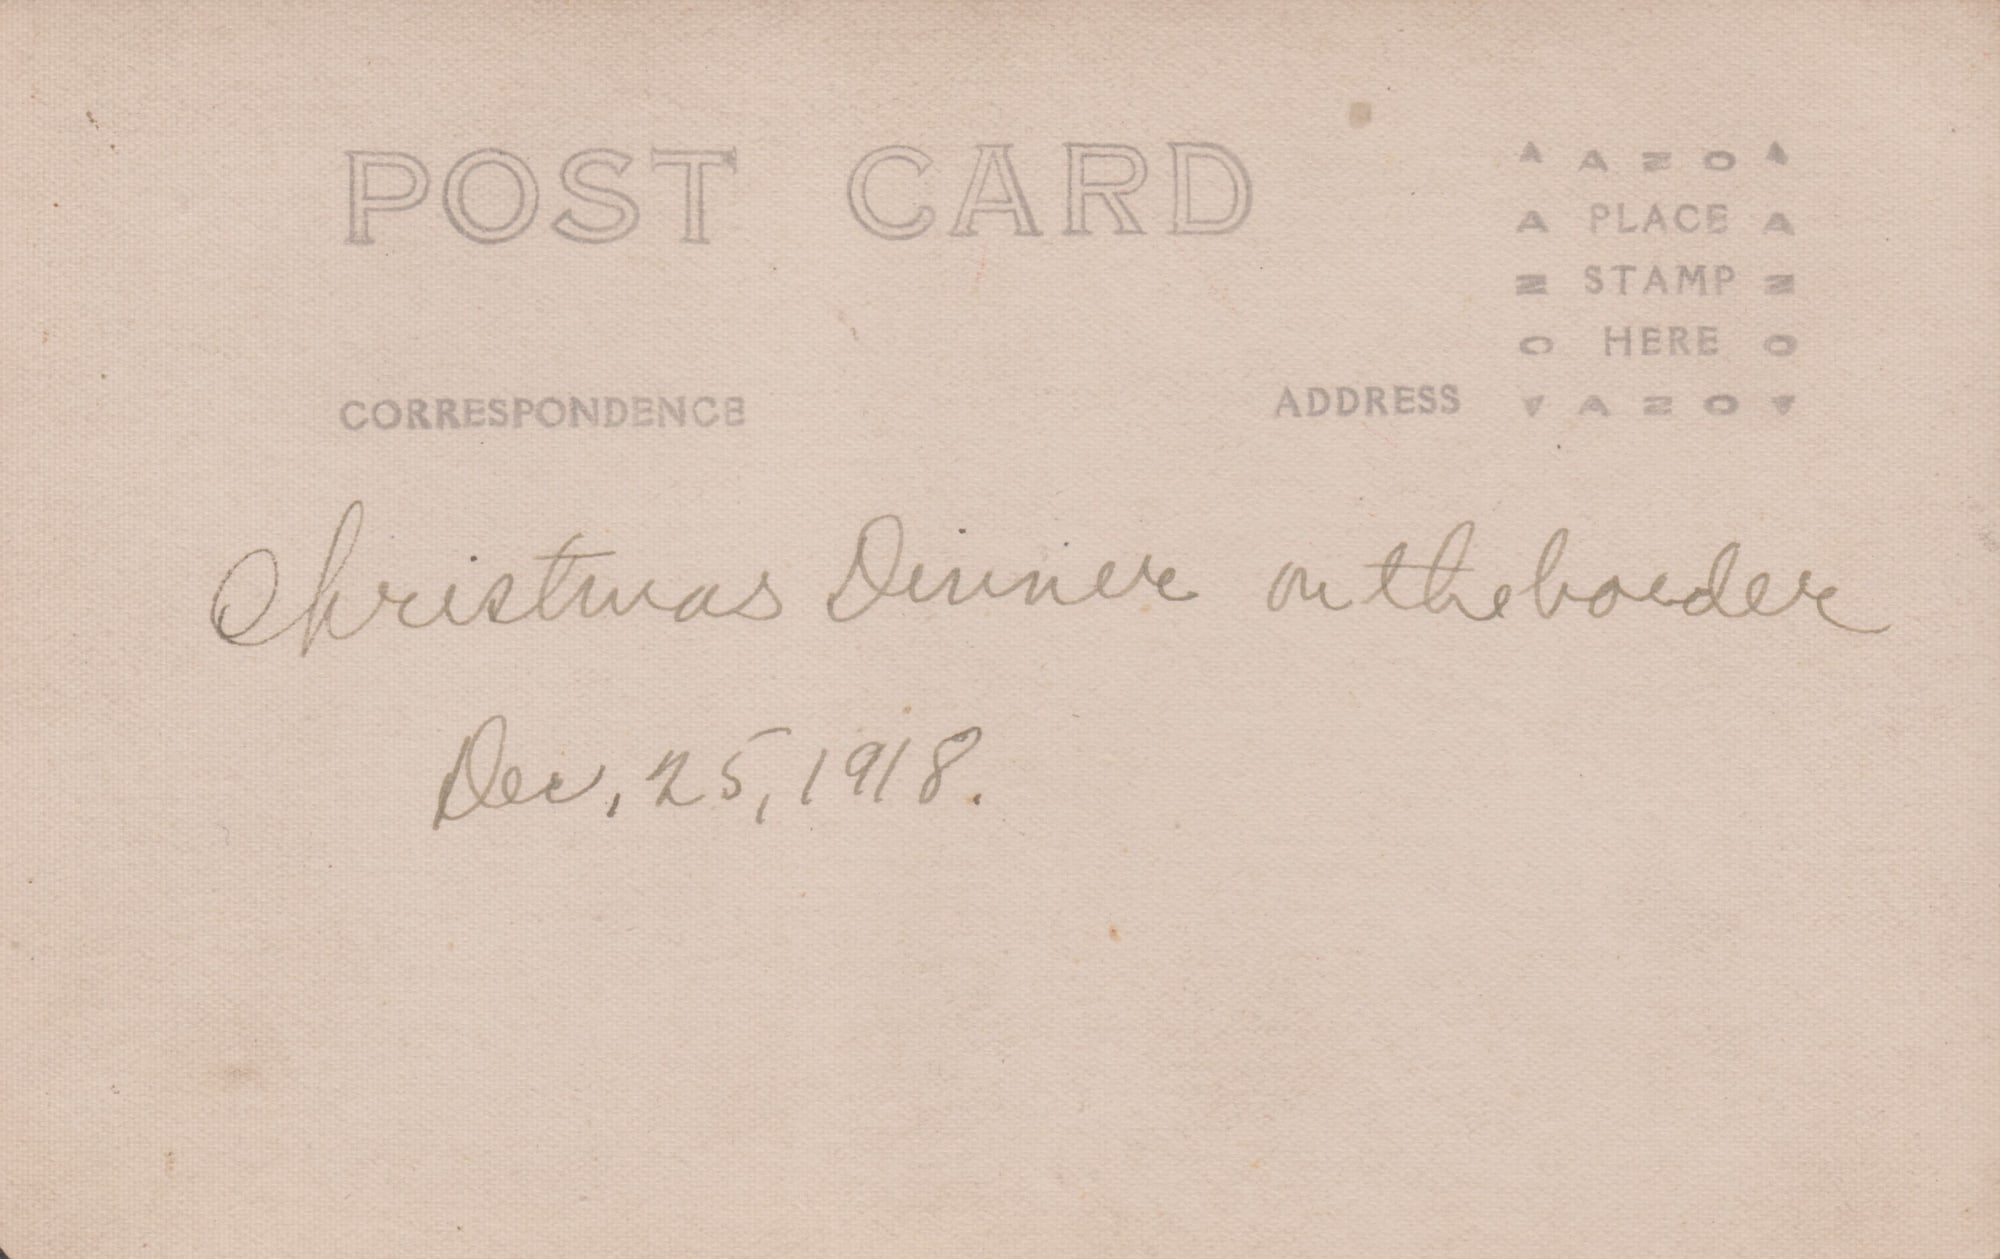 POST CARD
AZO
PLACE
STAMP
HERE
AZO
CORRESPONDENCE
ADDRESS
Christmas Dinner on the border
Dec, 25, 1918.